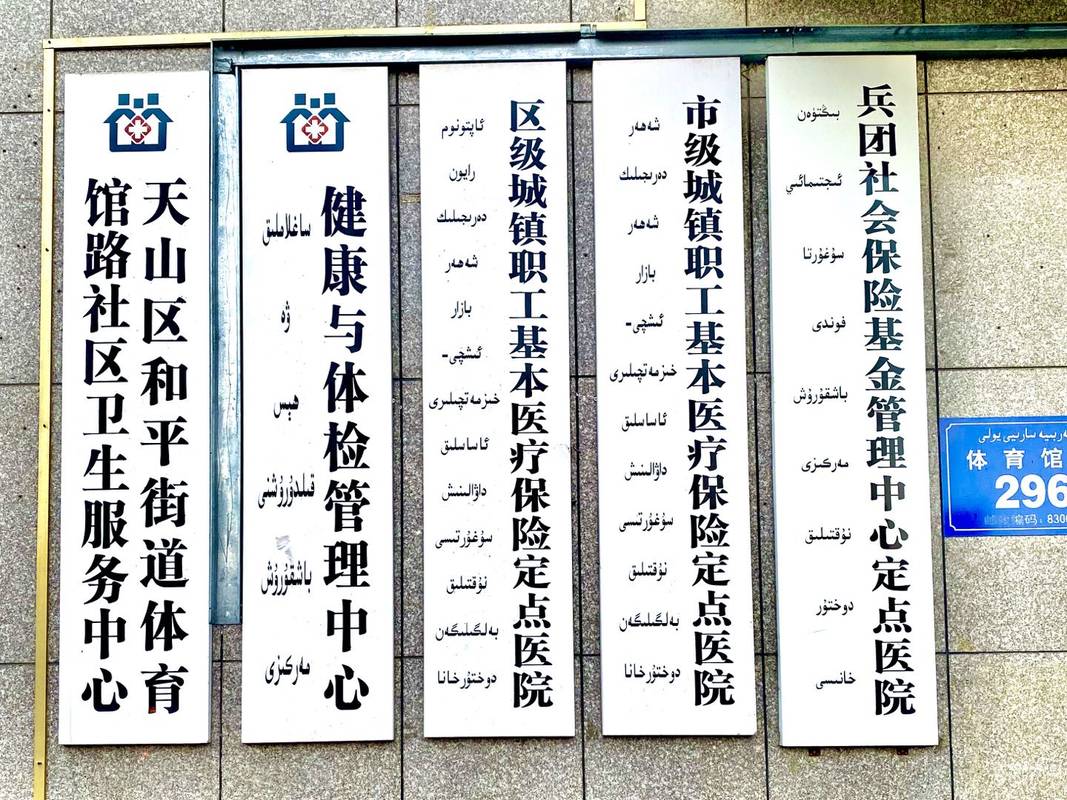 天山区和平街道体育
馆路社区卫生服务中心
健康与体检管理中心
ساغلاملىق
ۋە
قىلدۇرۇشنى
باشقۇرۇش
مەركىزى
区级城镇职工基本医疗保险定点医院
ئاپتونوم
رايون
دەرىجىلىك
شەھەر
بازار
ئىشچى-
خىزمەتچىلىرى
ئاساسلىق
داۋالىنىش
سۇغۇرتىسى
نۇقتىلىق
بەلگىلىگەن
دوختۇرخانا
市级城镇职工基本医疗保险定点医院
شەھەر
دەرىجىلىك
شەھەر
بازار
ئىشچى-
خىزمەتچىلىرى
ئاساسلىق
داۋالىنىش
سۇغۇرتىسى
نۇقتىلىق
بەلگىلىگەن
دوختۇرخانا
兵团社会保险基金管理中心定点医院
بىڭتۈەن
ئىجتىمائىي
سۇغۇرتا
فوندى
باشقۇرۇش
مەركىزى
نۇقتىلىق
دوختۇر
خانىسى
体育馆
296